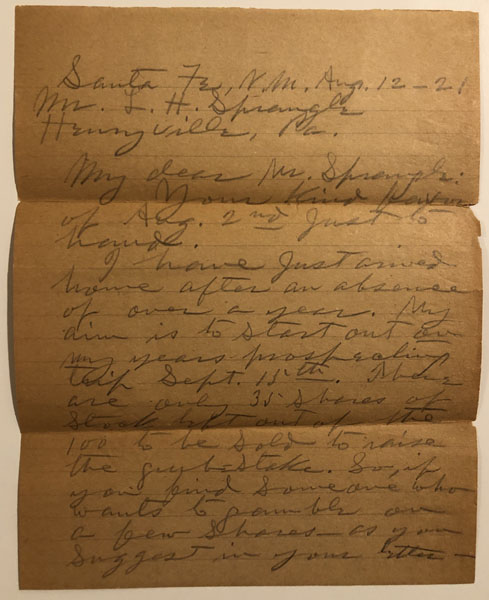 Santa Fe, N.M. Aug. 12 - 21
Mr. L. H. Sprangle
Henryville, Pa.
My dear Mr. Sprangle:
Your kind favor
of Aug. 2nd just to
hand.
I have just arived
home after an absence
of over a year. My
aim is to start out on
my years prospecting
trip Sept. 15th. There
are only 35 shares of
stock left out of the
100 to be sold to raise
the grubestake. So, if
you find someone who
wants to gamble on
a few shares - as you
suggest in your letter -